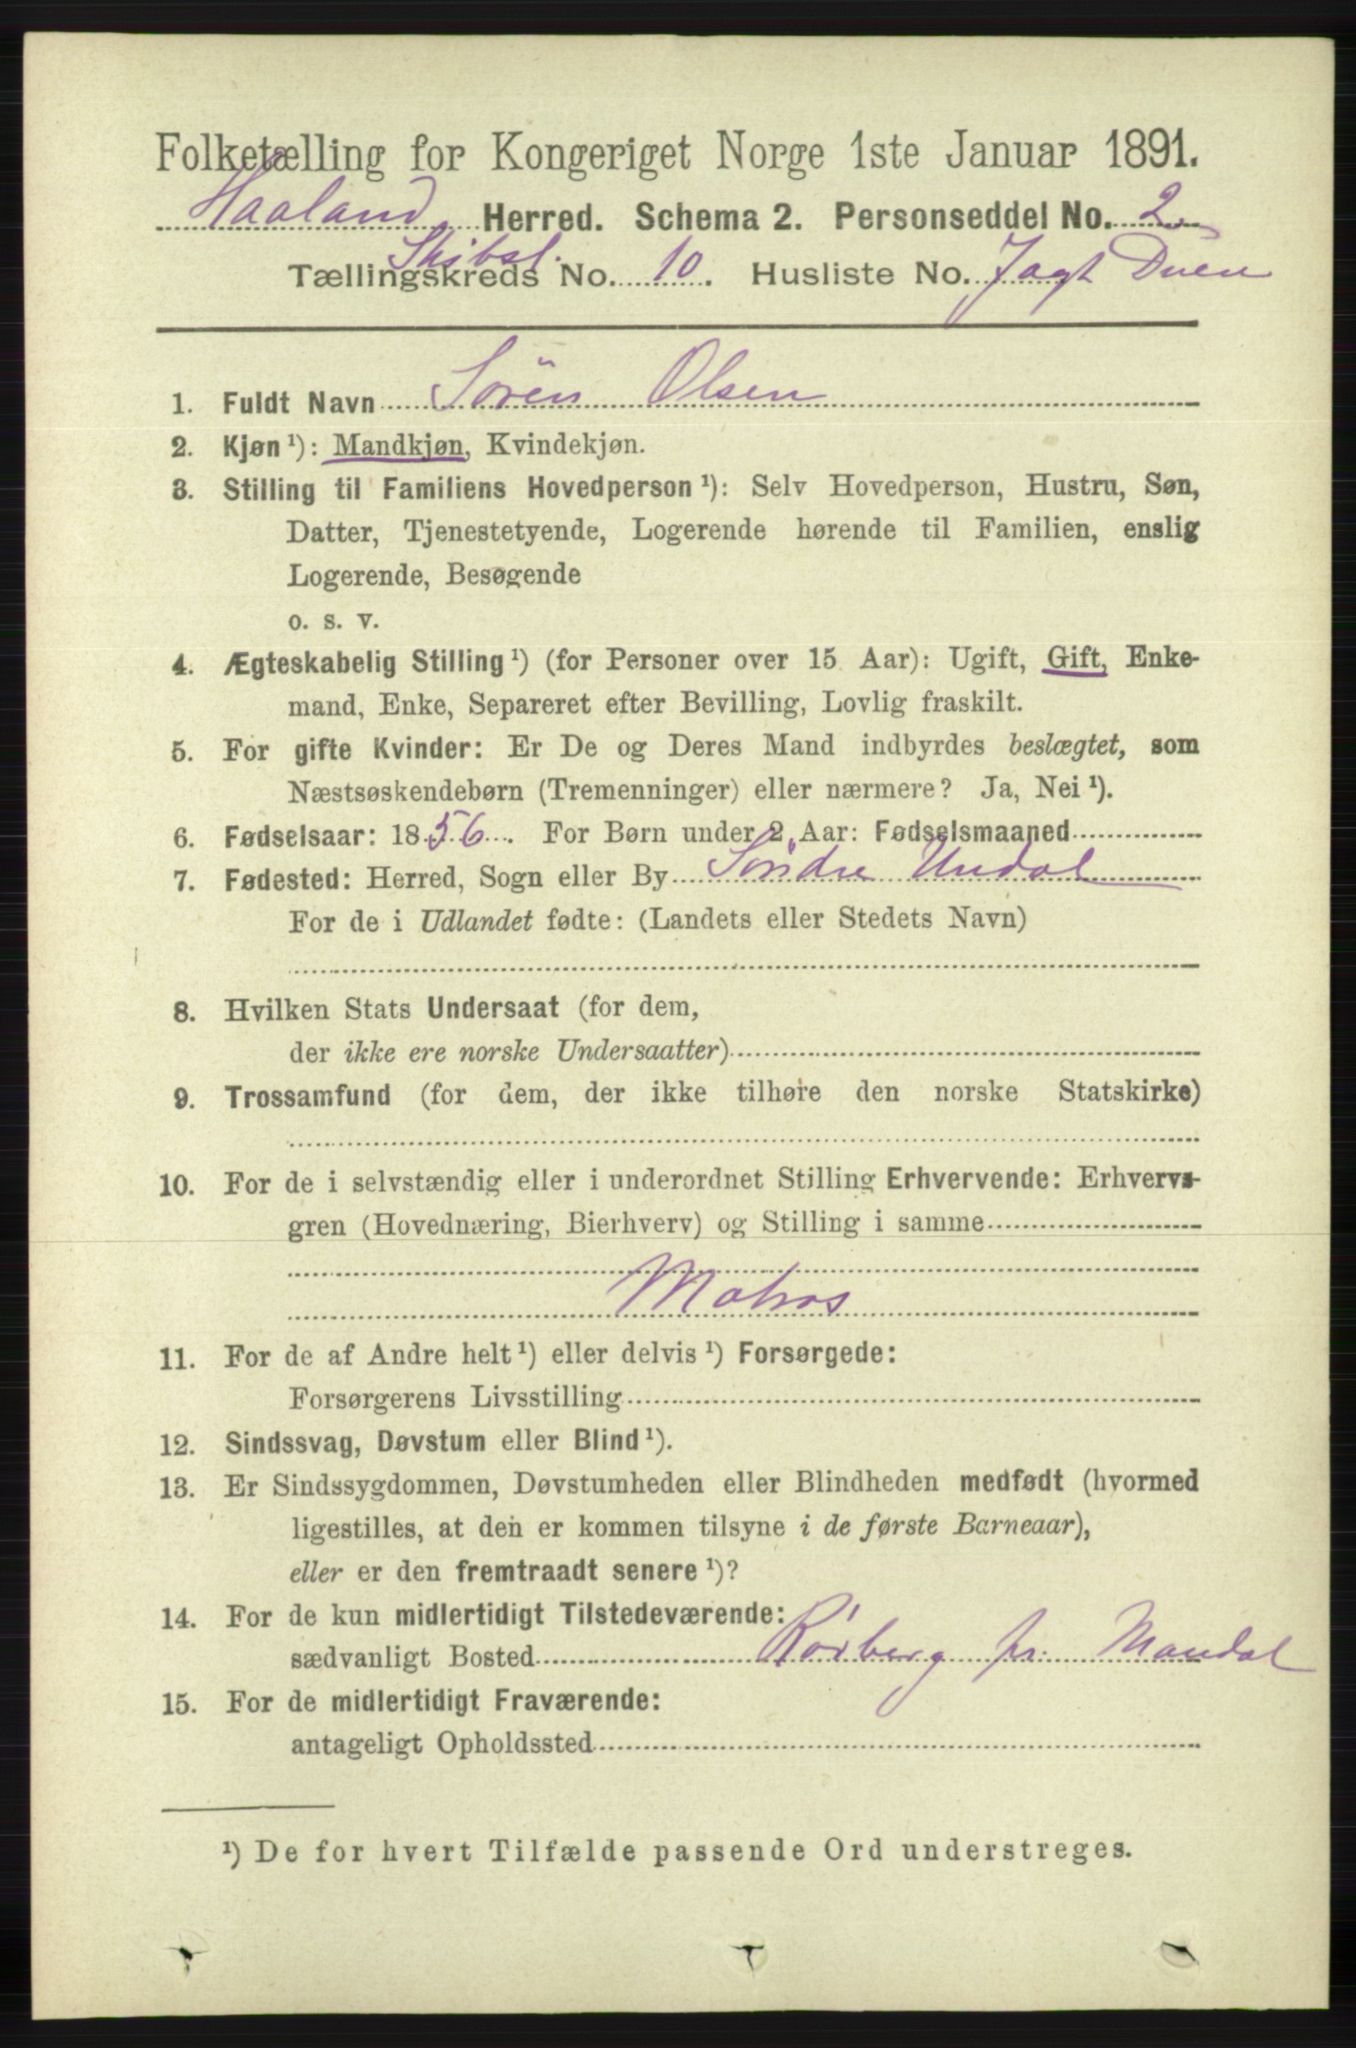 Folketælling for Kongeriget Norge 1ste Januar 1891.
Haaland Herred. Schema 2. Personseddel No. 2
Skibsl.
Tællingskreds No. 10. Husliste No. Jagt Duen
1. Fuldt Navn Sören Olsen
2. Kjøn ¹): Mandkjøn, Kvindekjøn.
3. Stilling til Familiens Hovedperson ¹): Selv Hovedperson, Hustru, Søn,
Datter, Tjenestetyende, Logerende hørende til Familien, enslig
Logerende, Besøgende
o. s. v.
4. Ægteskabelig Stilling ¹) (for Personer over 15 Aar): Ugift, Gift, Enke-
mand, Enke, Separeret efter Bevilling, Lovlig fraskilt.
5. For gifte Kvinder: Er De og Deres Mand indbyrdes beslægtet, som
Næstsøskendebørn (Tremenninger) eller nærmere? Ja, Nei ¹).
6. Fødselsaar: 1856. For Børn under 2 Aar: Fødselsmaaned
7. Fødested: Herred, Sogn eller By Söndre Undal
For de i Udlandet fødte: (Landets eller Stedets Navn)
8. Hvilken Stats Undersaat (for dem,
der ikke ere norske Undersaatter)
9. Trossamfund (for dem, der ikke tilhøre den norske Statskirke)
10. For de i selvstændig eller i underordnet Stilling Erhvervende: Erhvervs-
gren (Hovednæring, Bierhverv) og Stilling i samme
Matros
11. For de af Andre helt ¹) eller delvis ¹) Forsørgede:
Forsørgerens Livsstilling
12. Sindssvag, Døvstum eller Blind ¹).
13. Er Sindssygdommen, Døvstumheden eller Blindheden medfødt (hvormed
ligestilles, at den er kommen tilsyne i de første Barneaar),
eller er den fremtraadt senere ¹)?
14. For de kun midlertidigt Tilstedeværende:
sædvanligt Bosted Rörberg pr. Mandal
15. For de midlertidigt Fraværende:
antageligt Opholdssted
¹) De for hvert Tilfælde passende Ord understreges.